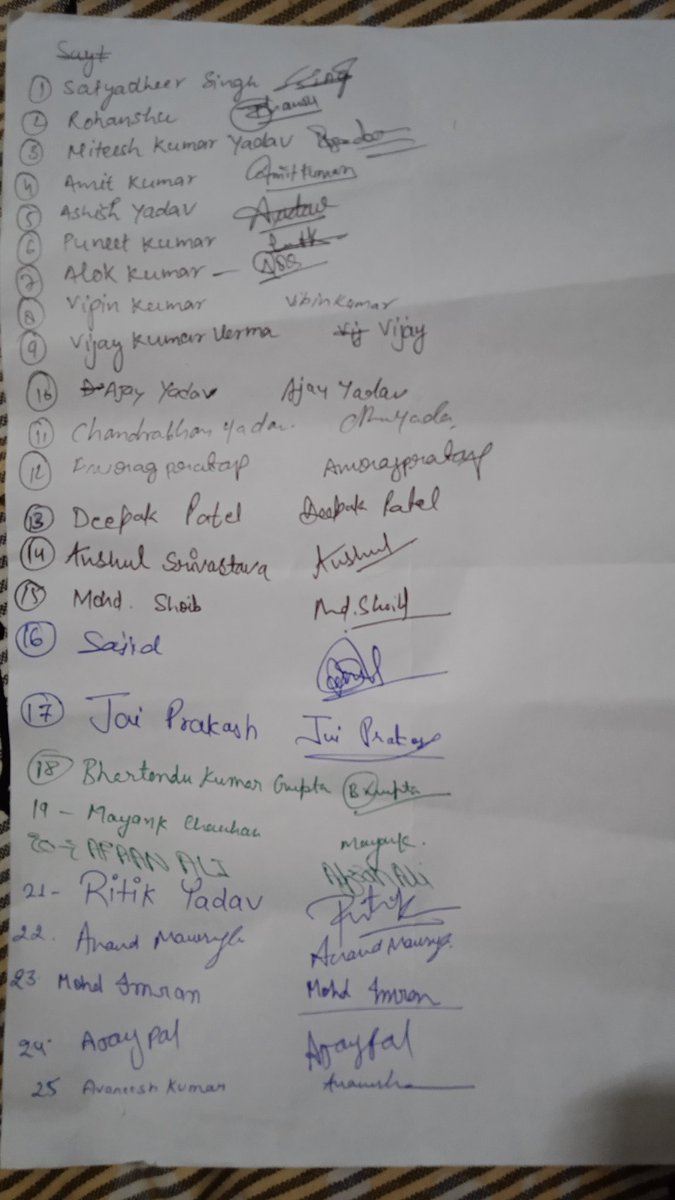 Sayt
1 Satyadheer Singh Sing
2 Rohanshu
3 Miteesh Kumar Yadav
4 Amit Kumar Amit Kumar
5 Ashish Yadav
6 Puneet Kumar
7 Alok Kumar -
8 Vipin Kumar Vipin Kumar
9 Vijay Kumar Verma Vij Vijay
10 Ajay Yadav Ajay Yadav
11 Chandrabhan Yadav.
12 Anurag poratap Anurag poratap
13 Deepak Patel Deepak Patel
14 Kushul Srivastava Kushul
15 Mohd. Shoib Md. Shoib
16 Sajid
17 Jai Prakash Jai Prakash
18 Bhertendu Kumar Gupta BKGupta
19 - Mayank Chauhan Mayank.
AFAAN ALI Afaan Ali
21- Ritik Yadav Ritik
22. Anand Maurya Anand Maurya
23 Mohd Imran Mohd Imran
24. Ajay pal Ajaypal
25 Avaneesh Kumar